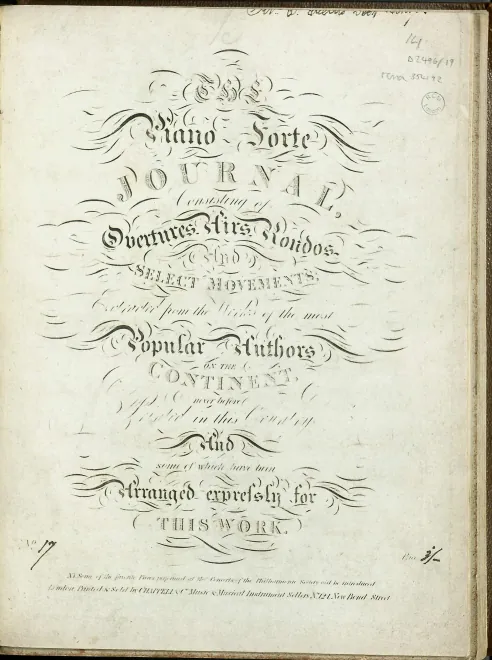 14
D2496/19
THE
Piano Forte
JOURNAL,
Consisting of
Overtures, Airs, Rondos
And
SELECT MOVEMENTS;
Extracted from the Works of the most
Popular Authors
ON THE
CONTINENT,
never before
Printed in this Country,
And
some of which have been
Arranged expressly for
THIS WORK.
No. 19
Price 3/-
NB. Some of the favorite Pieces performed at the Concerts of the Philharmonic Society will be introduced
London Printed & Sold by CHAPPELL & Co. Music & Musical Instrument Sellers No. 124 New Bond Street